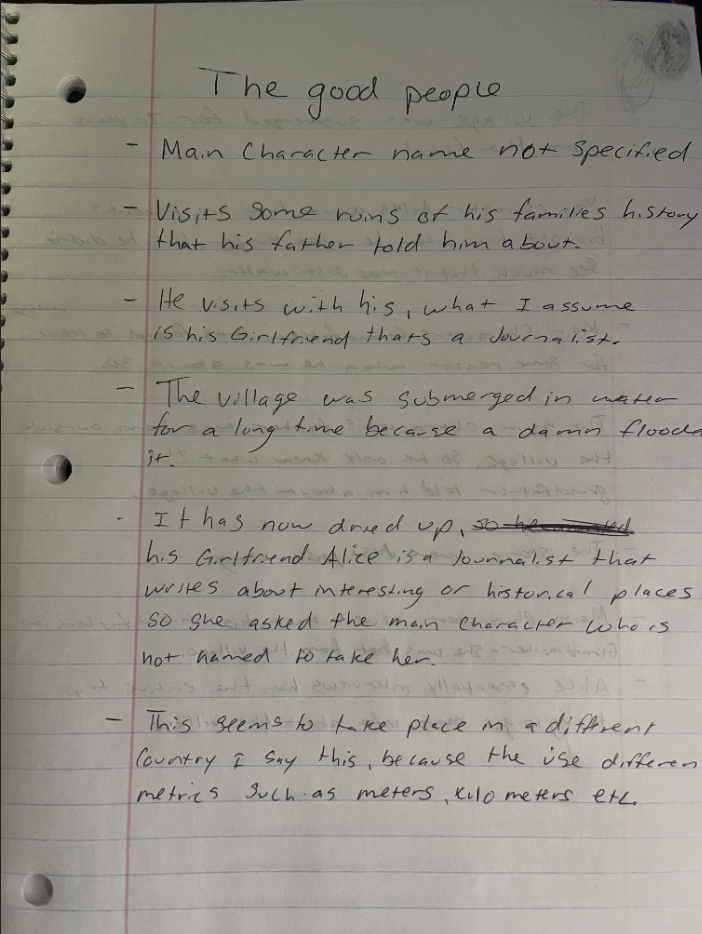 The good people
- Main Character name not specified
- Visits some ruins of his families history
that his father told him about.
- He visits with his, what I assume
is his Girlfriend thats a Journalist.
- The village was submerged in water
for a long time because a damn floode
it.
- It has now dried up,
his Girlfriend Alice is a Journalist that
writes about interesting or historical places
so she asked the main character who is
not named to take her.
- This seems to take place in a different
Country I say this, because the use differen
metrics such as meters, kilometers etc.